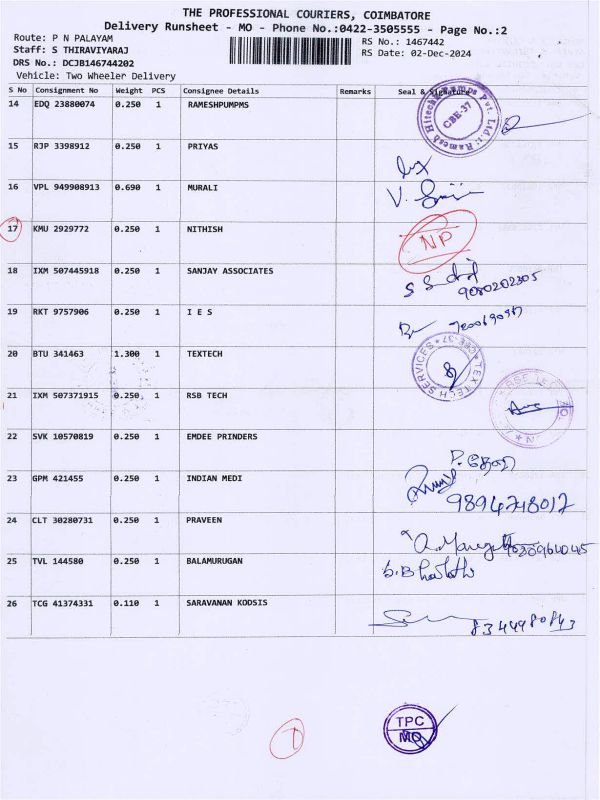 THE PROFESSIONAL COURIERS, COIMBATORE
Delivery Runsheet - MO - Phone No.:0422-3505555 - Page No.:2
Route: P N PALAYAM
RS No.: 1467442
Staff: S THIRAVIYARAJ
RS Date: 02-Dec-2024
DRS No.: DCJB146744202
Vehicle: Two Wheeler Delivery
S No Consignment No Weight PCS Consignee Details Remarks Seal & Signature
14 EDQ 23880074 0.250 1 RAMESHPUMPMS
CBE-37
15 RJP 3398912 0.250 1 PRIYAS
16 VPL 949908913 0.690 1 MURALI
17 KMU 2929772 0.250 1 NITHISH
NP
18 IXM 507445918 0.250 1 SANJAY ASSOCIATES
9080202305
19 RKT 9757906 0.250 1 I E S
20 BTU 341463 1.300 1 TEXTECH
TEXTECH SERVICES * CBE-37 *
21 IXM 507371915 0.250 1 RSB TECH
22 SVK 10570819 0.250 1 EMDEE PRINDERS
23 GPM 421455 0.250 1 INDIAN MEDI
9894718017
24 CLT 30280731 0.250 1 PRAVEEN
25 TVL 144580 0.250 1 BALAMURUGAN
26 TCG 41374331 0.110 1 SARAVANAN KODSIS
8344980843
TPC
MO